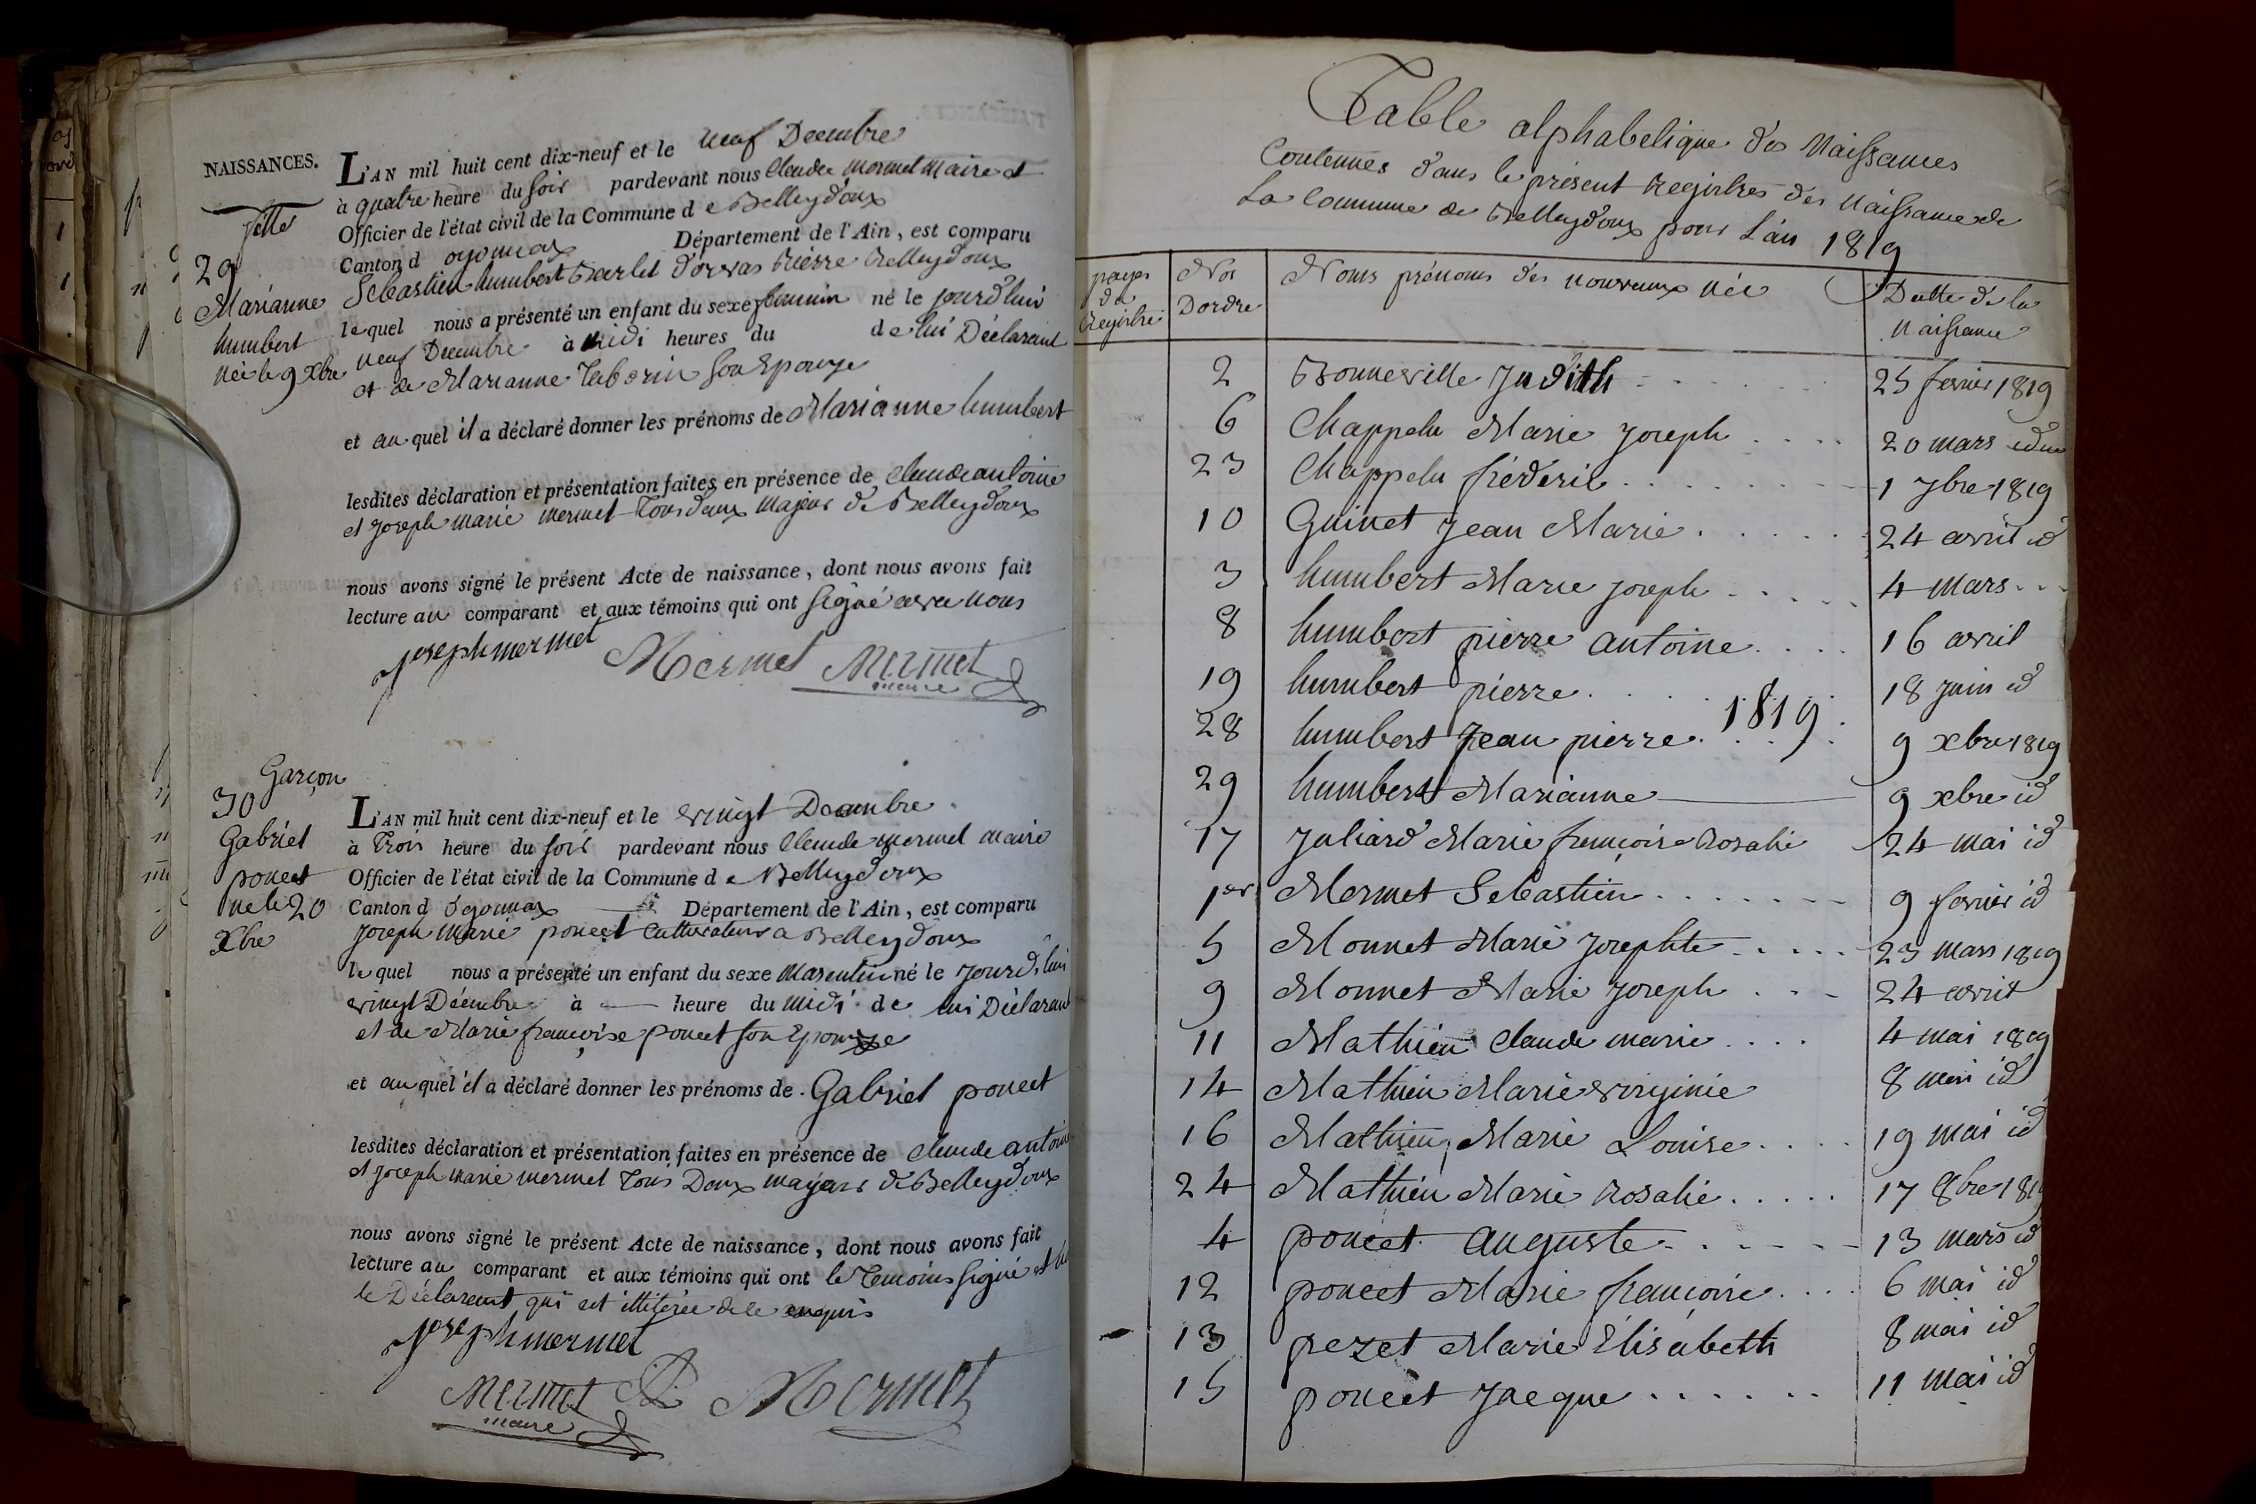 NAISSANCES.
fille
29
Marianne
humbert
née le 9 Xbre
L'AN mil huit cent dix-neuf et le neuf Decembre
à quatre heure du soir pardevant nous Claude Mermet Maire et
Officier de l'état civil de la Commune d e Belleydoux
Canton d oyonnax Département de l'Ain, est comparu
Sebastien humbert d'orvas Rierre Belleydoux
lequel nous a présenté un enfant du sexe feminin né le jourd'hui
neuf Decembre à midi heures du de lui Déclarant
et de Marianne Taborin son Epouze
et au quel il a déclaré donner les prénoms de Marianne humbert
lesdites déclaration et présentation faites en présence de claude antoine
et joseph marie mermet Tous deux majeur de Belleydoux
nous avons signé le présent Acte de naissance, dont nous avons fait
lecture au comparant et aux témoins qui ont signé avec nous
joseph mermet Mermet Mermet
maire
Garçon
30
Gabriel
poncet
né le 20
Xbre
L'AN mil huit cent dix-neuf et le vingt Decembre
à Trois heure du soir pardevant nous Claude mermet maire
Officier de l'état civil de la Commune d e Belleydoux
Canton d oyonnax Département de l'Ain, est comparu
joseph marie poncet Cultivateur a Belleydoux
lequel nous a présenté un enfant du sexe Masculin né le jourd'hui
vingt Décembre à heure du midi de lui Déclarant
et de Marie françoise poncet son Epouze
et au quel il a déclaré donner les prénoms de Gabriel poncet
lesdites déclaration et présentation faites en présence de claude antoine
et joseph marie mermet Tous Deux majeurs de Belleydoux
nous avons signé le présent Acte de naissance, dont nous avons fait
lecture au comparant et aux témoins qui ont le Temoins signé et
le Déclarent qui est illiterée de le enquis
joseph mermet
Mermet Mermet
maire
Table alphabetique des Naissances
Contennes dans le présent Registres des Naissance de
La Commune de Belleydoux pour L'an 1819
pages du Registre
Nos Dordre
Noms prénoms des nouveaux née
Datte de la Naissance
2 Bonneville Judith 25 fevrier 1819
6 Chappelu Marie Joseph 20 mars idem
23 Chappelu fréderic 1 7bre 1819
10 Guinet Jean Marie 24 avril id
3 humbert Marie joseph 4 mars
8 humbert pierre antoine 16 avril
19 humbert pierre 18 juin id
28 humbert Jean pierre 1819 9 xbre 1819
29 humbert Marianne 9 xbre id
17 Juliard Marie françoise Rosalie 24 mai id
1er Mermet Sebastien 9 fevrier id
5 Monnet Marie Josephte 23 mars 1819
9 Monnet Marie Joseph 24 avril
11 Mathieu Claude marie 4 mai 1819
14 Mathieu Marie virginie 8 mai id
16 Mathieu Marie Louise 19 mai id
24 Mathieu Marie Rosalie 17 8bre 1819
4 poncet Auguste 13 mars id
12 poncet Marie françoise 6 mai id
13 pezet Marie Elisabeth 8 mai id
15 poncet Jacque 11 mai id